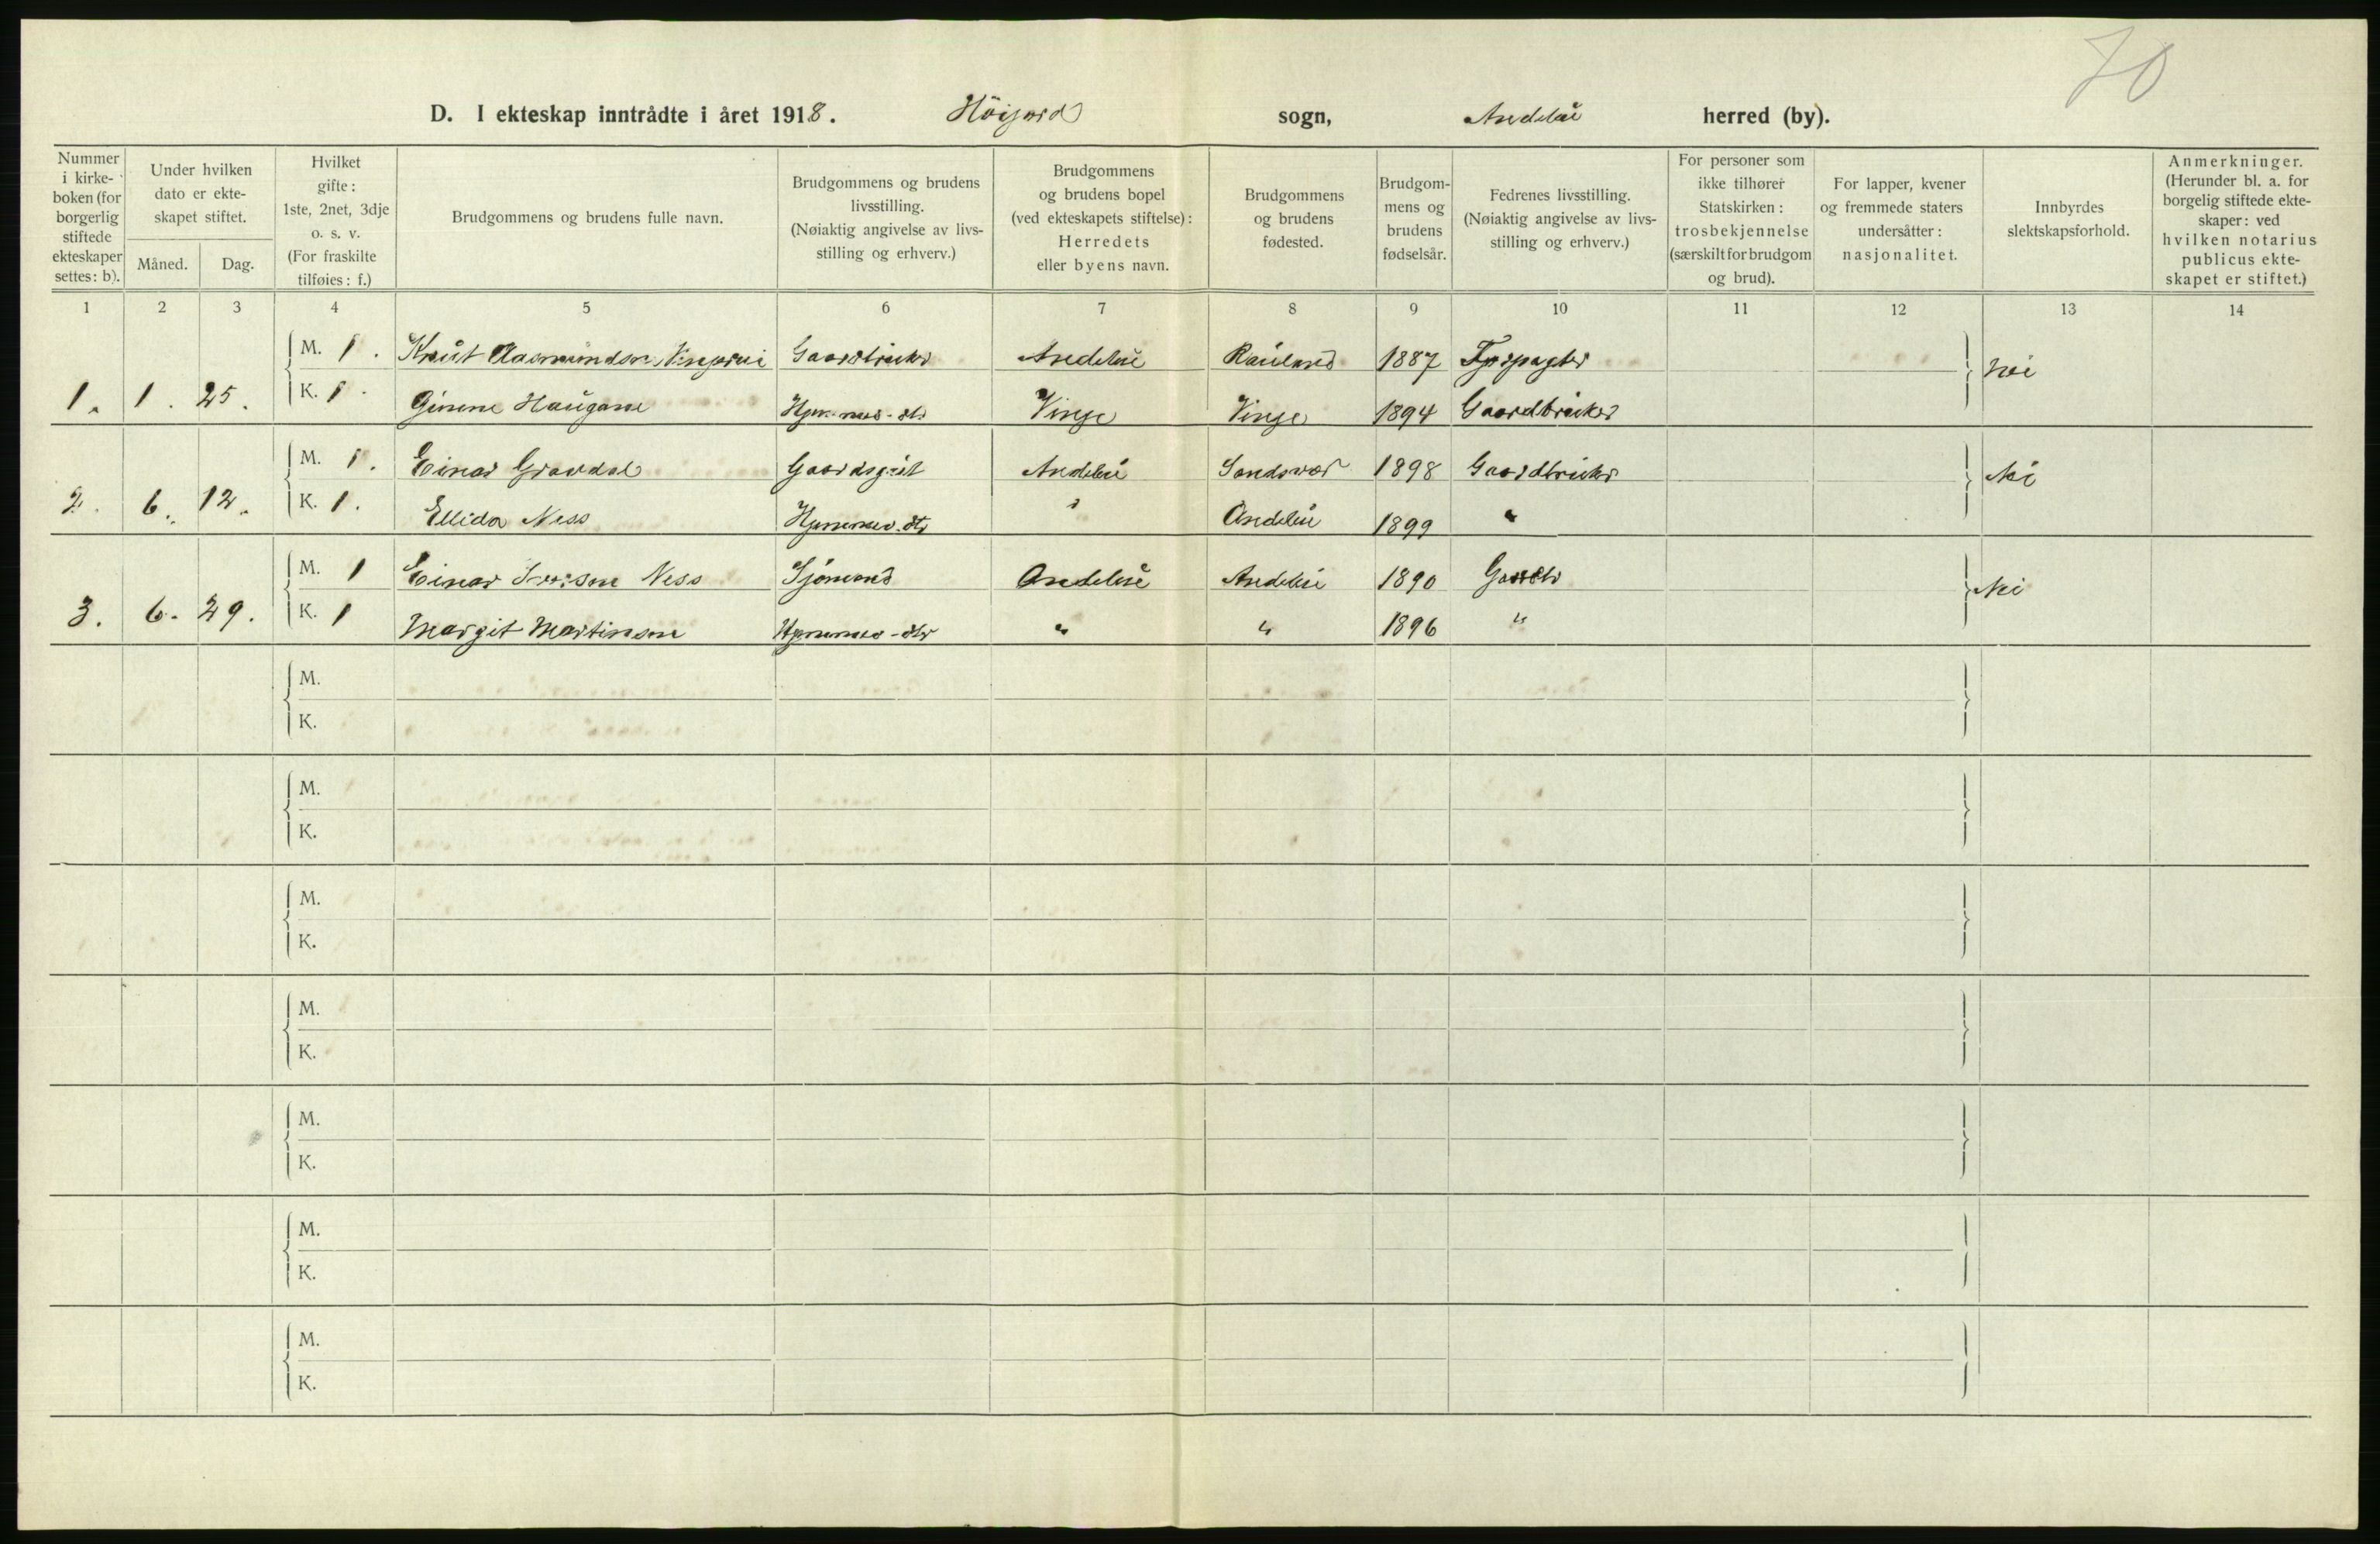 70
D. I ekteskap inntrådte i året 1918. Höijord sogn, Andebu herred (by).
Nummer i kirke-boken (for borgerlig stiftede ekteskaper settes: b).
Under hvilken dato er ekte-skapet stiftet.
Måned. Dag.
Hvilket gifte: 1ste, 2net, 3dje o. s. v. (For fraskilte tilføies: f.)
Brudgommens og brudens fulle navn.
Brudgommens og brudens livsstilling. (Nøiaktig angivelse av livs-stilling og erhverv.)
Brudgommens og brudens bopel (ved ekteskapets stiftelse): Herredets eller byens navn.
Brudgommens og brudens fødested.
Brudgom-mens og brudens fødselsår.
Fedrenes livsstilling. (Nøiaktig angivelse av livs-stilling og erhverv.)
For personer som ikke tilhører Statskirken: trosbekjennelse (særskilt for brudgom og brud).
For lapper, kvener og fremmede staters undersåtter: nasjonalitet.
Innbyrdes slektskapsforhold.
Anmerkninger. (Herunder bl. a. for borgelig stiftede ekte-skaper: ved hvilken notarius publicus ekte-skapet er stiftet.)
1 2 3 4 5 6 7 8 9 10 11 12 13 14
M. 1. Knut Aasmundsen Gaardbruker Andebu Rauland 1887 Nei
1. 1. 25. K. 1. Ginene Haugane Vinje Vinje 1894 Gaardbruker
M. 1. Einar Gravdal Gaardsgut Andebu Sandsvær 1898 Gaardbruker Nei
2. 6. 12. K. 1. Ellida Ness Andebu 1899 "
M. 1 Einar Ness Sjömand Andebu Andebu 1890 Gaardbr Nei
3. 6. 29. K. 1 Margit Martinsen " " 1896 "
M.
K.
M.
K.
M.
K.
M.
K.
M.
K.
M.
K.
M.
K.